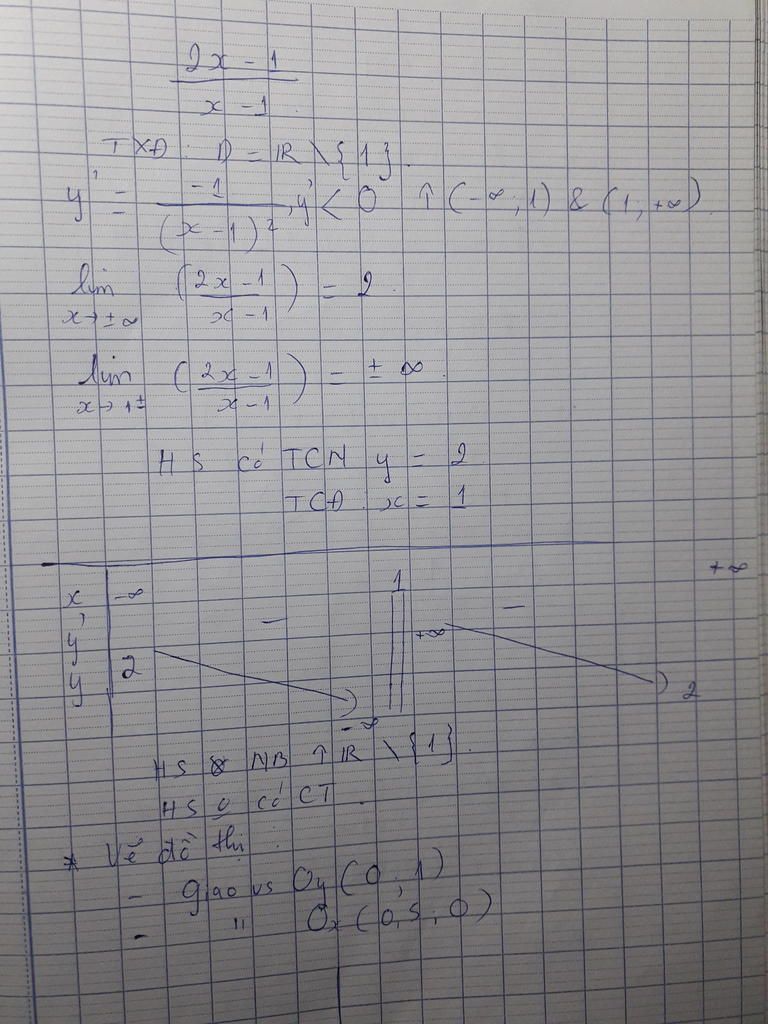 2x - 1
x - 1
TXĐ: D = ℝ \ {1}.
y' = -1/(x - 1)², y' < 0 ↑ (-∞; 1) & (1; +∞).
lim x→±∞ (2x - 1 / x - 1) = 2.
lim x→1± (2x - 1 / x - 1) = ± ∞.
HS có TCN y = 2
TCĐ: x = 1
x -∞ 1 +∞
y' - -
y 2 -∞ +∞ 2
HS NB ↑ ℝ \ {1}.
HS 0 có CT.
* Vẽ đồ thị:
- Giao vs Oy (0; 1)
- " Ox (0,5; 0)